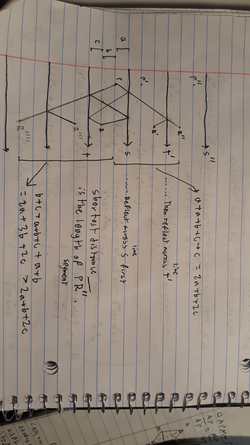 [a]
[b]
[c]
P
P'
P''
S
S''
t
t'
R
R'
R''
R'''
R''''
a+a+b+c+c = 2a+b+2c
...... Then reflect across line t'
...... Reflect across line S first
shortest distance
is the length of segment PR''.
b+c+a+b+c+a+b
= 2a+3b+2c > 2a+b+2c